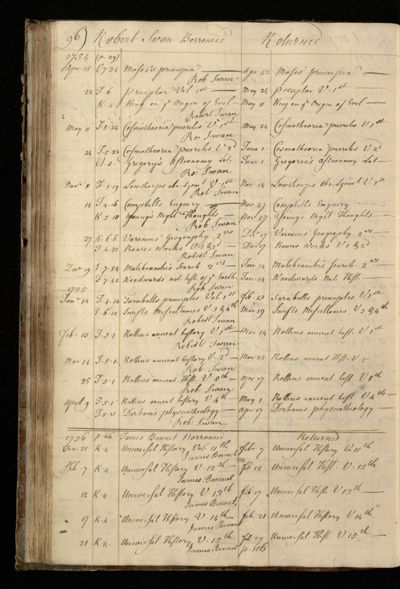 96) Robert Swan Borrowed Returned
1754 (p. 29)
Apr 15 C.7.25 Moses's principia — Apr 22 Moses' principia —
Rob Swan
22 J.6 Preceptor Vol. 1st — May 24 Preceptor V. 1st —
K.4 King on ye Origin of Evil — May 11 King on ye Origin of Evil —
Robert Swan
May 11 Cosmotheoria puerilis V. 1st May 24 Cosmotheoria puerilis V 1st
Ro: Swan
24 Cosmotheoria puerilis V. 2d June 1 Cosmotheoria puerilis V 2d
Gregory's Astronomy Lat. June 1 Gregorie's Astronomy Lat —
Ro: Swan
Nov 8 Lowthorp's abr. V. 1st Nov 14 Lowthorps V 1st
Rob Swan
14 Campbells Enquiry — Nov 27 Campbells Enquiry —
K.3.10 Young's Night Thoughts — Nov 27 Youngs Night Thoughts —
Rob Swan
27 K.6.6 Varenius' Geography 2 vs Dec 17 Varenius' Geography 2 vs —
Rowes Works V 1 & 2d Dec 17 Rowes Works V 1 & 2d
Robert Swan
Dec 19 Malebranche's Search 2 vs Jan 14 Malebranche's Search 2 vs
Woodwards nat. hist. ye Earth Jan 14 Woodwards Nat. Hist. —
1755 Rob Swan
Jan 14 Turnbulls principles Vol. 1st Feb Turnbulls principles V 1st
Swifts Miscellanies V 3 & 4th Mar Swifts Miscellanies V 3 & 4th
Robert Swan
Feb 18 Rollins ancient history V 1st Mar 14 Rollins ancient hist. V 1st
Robert Swan
Mar 14 Rollins ancient history V. 2d — Mar 25 Rollins ancient Hist. V 2d
Rob Swan
25 Rollins ancient Hist. V Apr Rollins ancient hist. V
Rob Swan
April 9 J.5.1 Rollins ancient history V 4th May 1 Rollins ancient hist. V 4th —
Derham's physicotheology — Apr Derhams physicotheology —
Rob Swan
1756 p. 66 James Bonnet Borrowed Returned
Jan 21 K.4 Universal History Vol. 11th Feb. 7 Universal History Vol 11th
James Bonnet
Feb. 7 K.4 Universal History V. 12th — Feb 12 Universal Hist. V. 12th
James Bonnet
12 K.4 Universal History V 13th Feb 17 Universal Hist. V 13th —
James Bonnet
17 K.4 Universal History V 14th Feb. 21 Universal History V 14th
James Bonnet
21 K.4 Universal History V. 15th Feb Universal Hist. V 15th —
James Bonnet p. 106